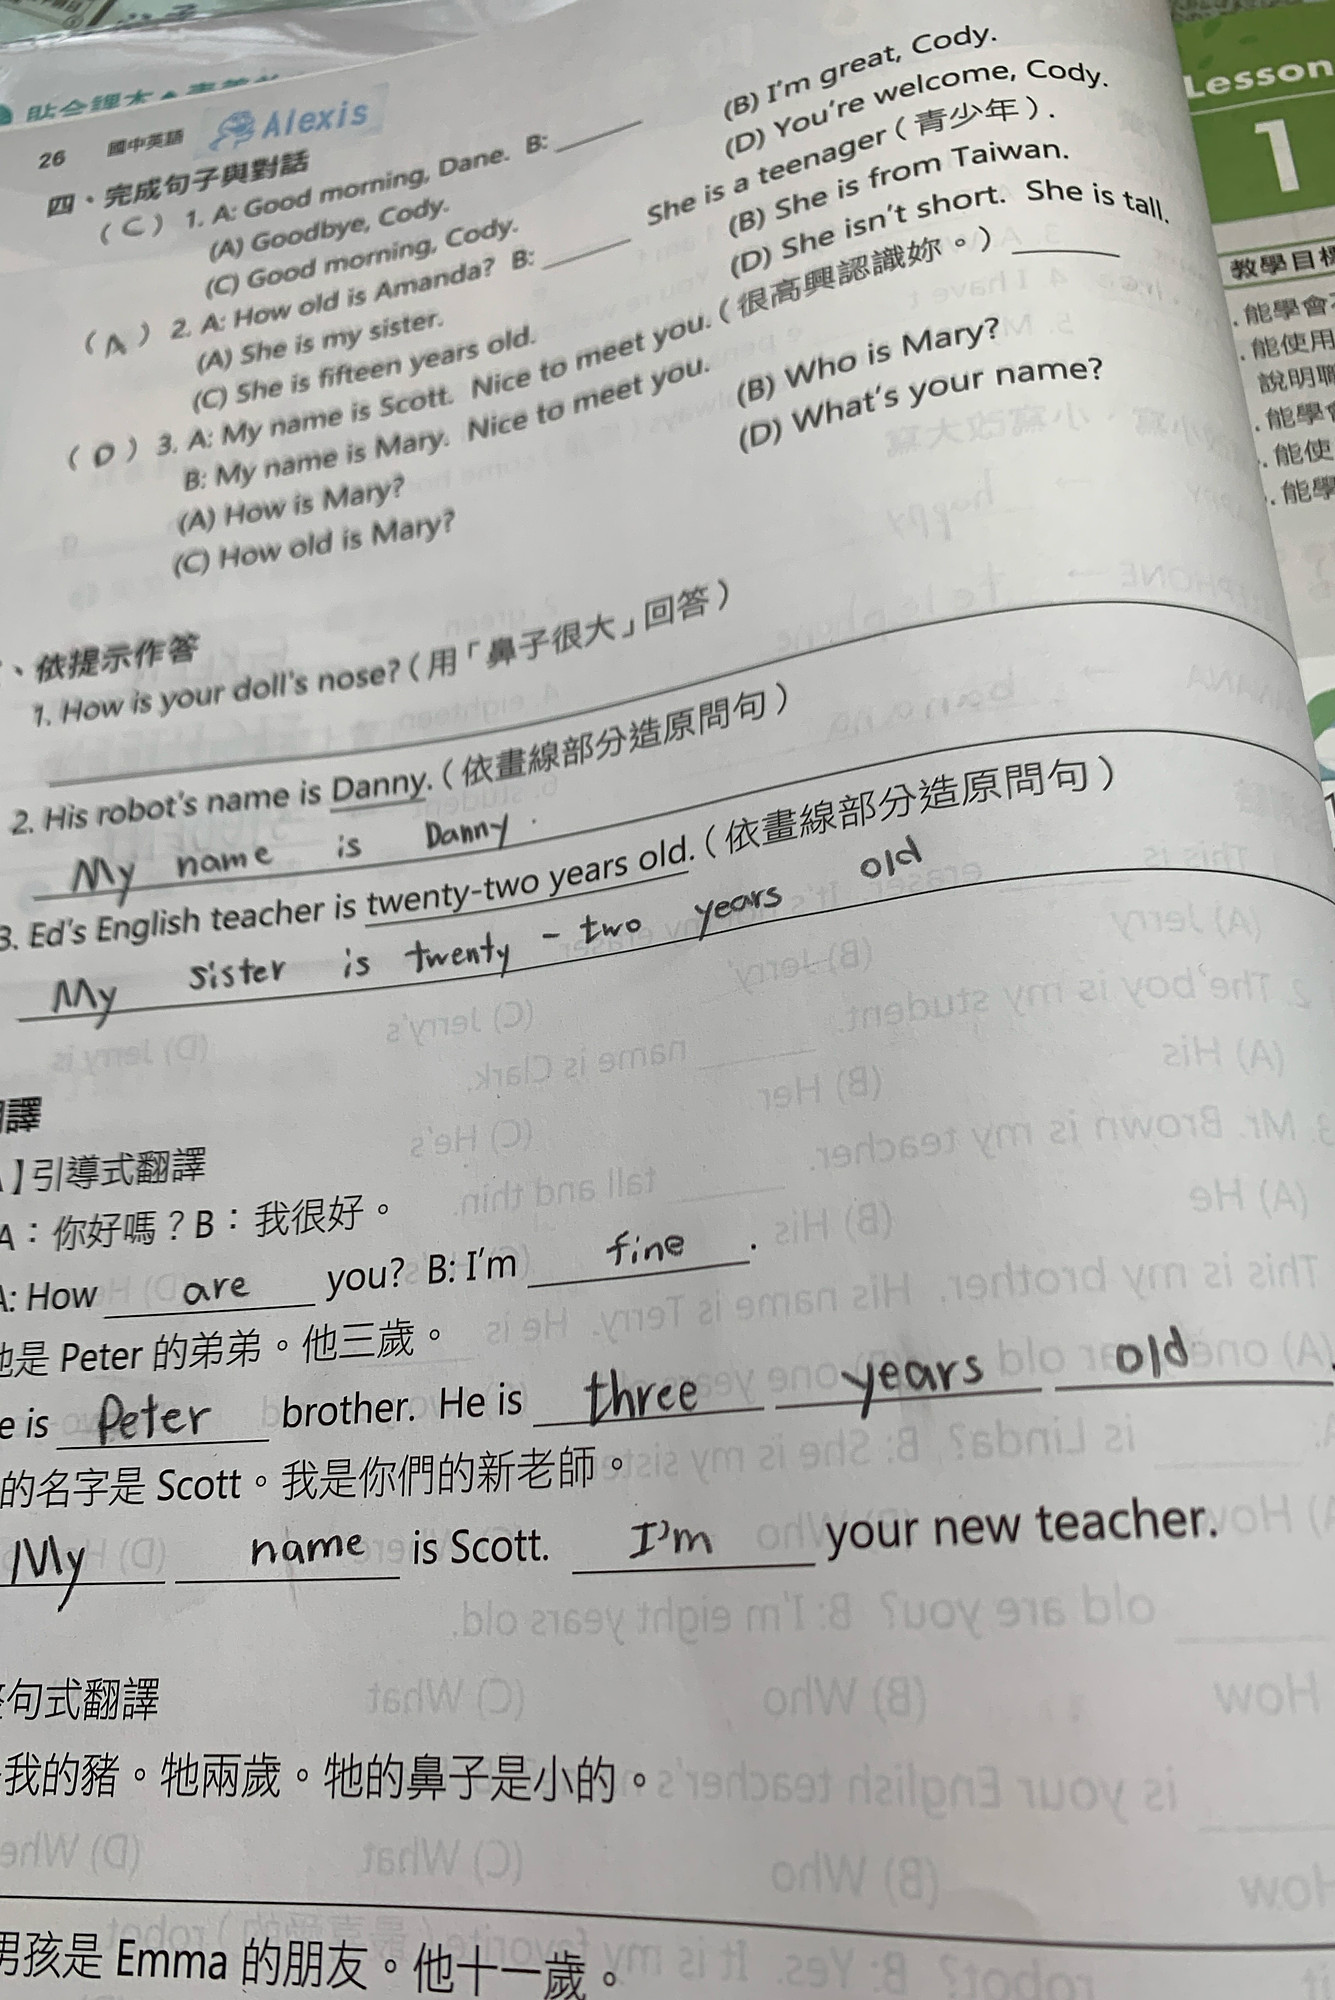 26 國中英語 Alexis
四、完成句子與對話
( C ) 1. A: Good morning, Dane. B: ______
(A) Goodbye, Cody. (B) I'm great, Cody.
(C) Good morning, Cody. (D) You're welcome, Cody.
( A ) 2. A: How old is Amanda? B: ______ She is a teenager(青少年).
(A) She is my sister. (B) She is from Taiwan.
(C) She is fifteen years old. (D) She isn't short. She is tall.
( D ) 3. A: My name is Scott. Nice to meet you.(很高興認識妳。) ______
B: My name is Mary. Nice to meet you.
(A) How is Mary? (B) Who is Mary?
(C) How old is Mary? (D) What's your name?
、依提示作答
1. How is your doll's nose?(用「鼻子很大」回答)
2. His robot's name is Danny.(依畫線部分造原問句)
My name is Danny.
3. Ed's English teacher is twenty-two years old.(依畫線部分造原問句)
My sister is twenty-two years old
譯
】引導式翻譯
A:你好嗎?B:我很好。
A: How are you? B: I'm fine.
是 Peter 的弟弟。他三歲。
e is Peter brother. He is three years old.
的名字是 Scott。我是你們的新老師。
My name is Scott. I'm your new teacher.
句式翻譯
我的豬。牠兩歲。牠的鼻子是小的。
男孩是 Emma 的朋友。他十一歲。
Lesson
1
教學目標
.能學會
.能使用
說明職
.能學會
.能使
.能學